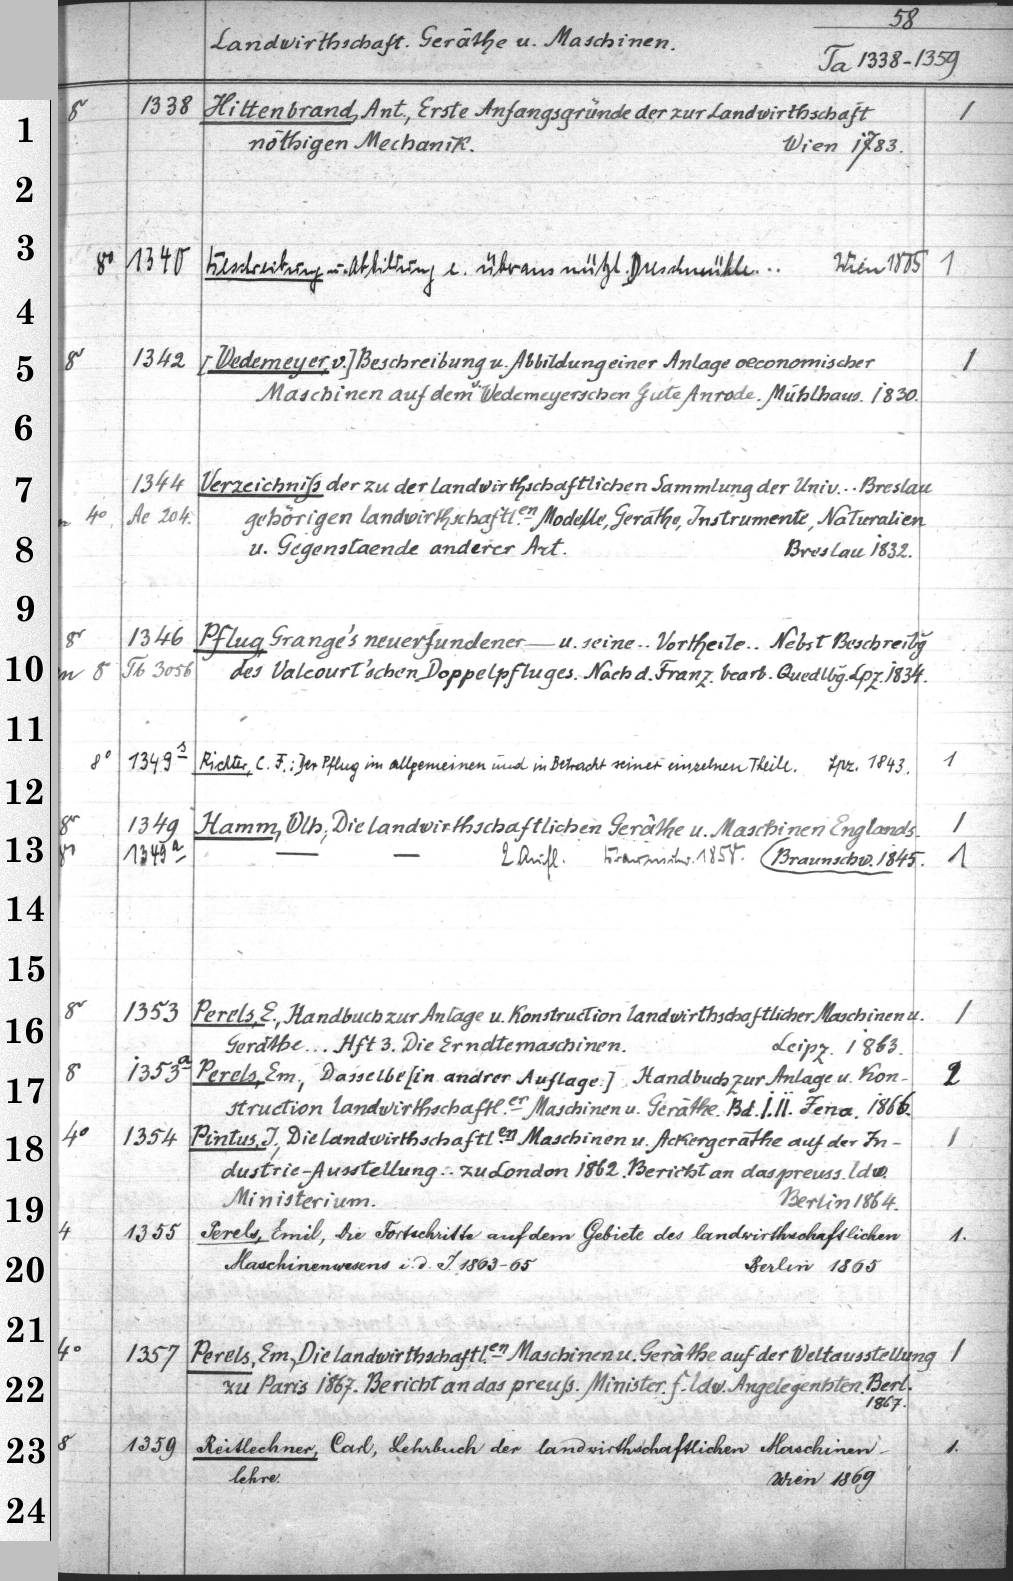 58
Landwirthschaft. Geräthe u. Maschinen.
Ta 1338-1359
1
2
3
4
5
6
7
8
9
10
11
12
13
14
15
16
17
18
19
20
21
22
23
24
8° 1338 Hiltenbrand, Ant., Erste Anfangsgründe der zur Landwirthschaft 1
nöthigen Mechanik. Wien 1783.
8° 1340 Beschreibung u. Abbildung e. überaus nützl. Dreschmühle... Wien 1805 1
8° 1342 [Wedemeyer, v.] Beschreibung u. Abbildung einer Anlage oeconomischer 1
Maschinen auf dem v. Wedemeyerschen Gute Anrode. Mühlhaus. 1830.
1344 Verzeichniß der zu der landwirthschaftlichen Sammlung der Univ... Breslau
4° Ae 204. gehörigen landwirthschaftl.en Modelle, Geräthe, Instrumente, Naturalien
u. Gegenstaende anderer Art. Breslau 1832.
8° 1346 Pflug Grangé's neuerfundener — u. seine.. Vortheile.. Nebst Beschreibg
in 8° Tb 3056 des Valcourt'schen Doppelpfluges. Nach d. Franz. bearb. Quedlbg. Lpz. 1834.
8° 1349s Richter, C. F.: Der Pflug im allgemeinen und in Betracht seiner einzelnen Theile. Lpz. 1843. 1
8° 1349 Hamm, Wlh., Die landwirthschaftlichen Geräthe u. Maschinen Englands. 1
8° 1349a — — 2 Aufl. Braunschw. 1858. (Braunschw. 1845. 1
8° 1353 Perels, E., Handbuch zur Anlage u. Konstruction landwirthschaftlicher Maschinen u. 1
Geräthe... Hft 3. Die Erndtemaschinen. Leipz. 1863.
8 1353a Perels, Em., Dasselbe [in andrer Auflage:] Handbuch zur Anlage u. Kon- 2
struction landwirthschaftl.er Maschinen u. Geräthe. Bd. I. II. Jena. 1866.
4° 1354 Pintus, J., Die landwirthschaftlen Maschinen u. Ackergeräthe auf der In- 1
dustrie-Ausstellung.. zu London 1862. Bericht an das preuss. ldw.
Ministerium. Berlin 1864.
4 1355 Perels, Emil, Die Fortschritte auf dem Gebiete des landwirthschaftlichen 1.
Maschinenwesens i. d. J. 1863-65 Berlin 1865
4° 1357 Perels, Em., Die landwirthschaftl.en Maschinen u. Geräthe auf der Weltausstellung 1
zu Paris 1867. Bericht an das preuß. Minister. f. ldw. Angelegenhten. Berl.
1867.
8 1359 Reitlechner, Carl, Lehrbuch der landwirthschaftlichen Maschinen- 1.
lehre. Wien 1869